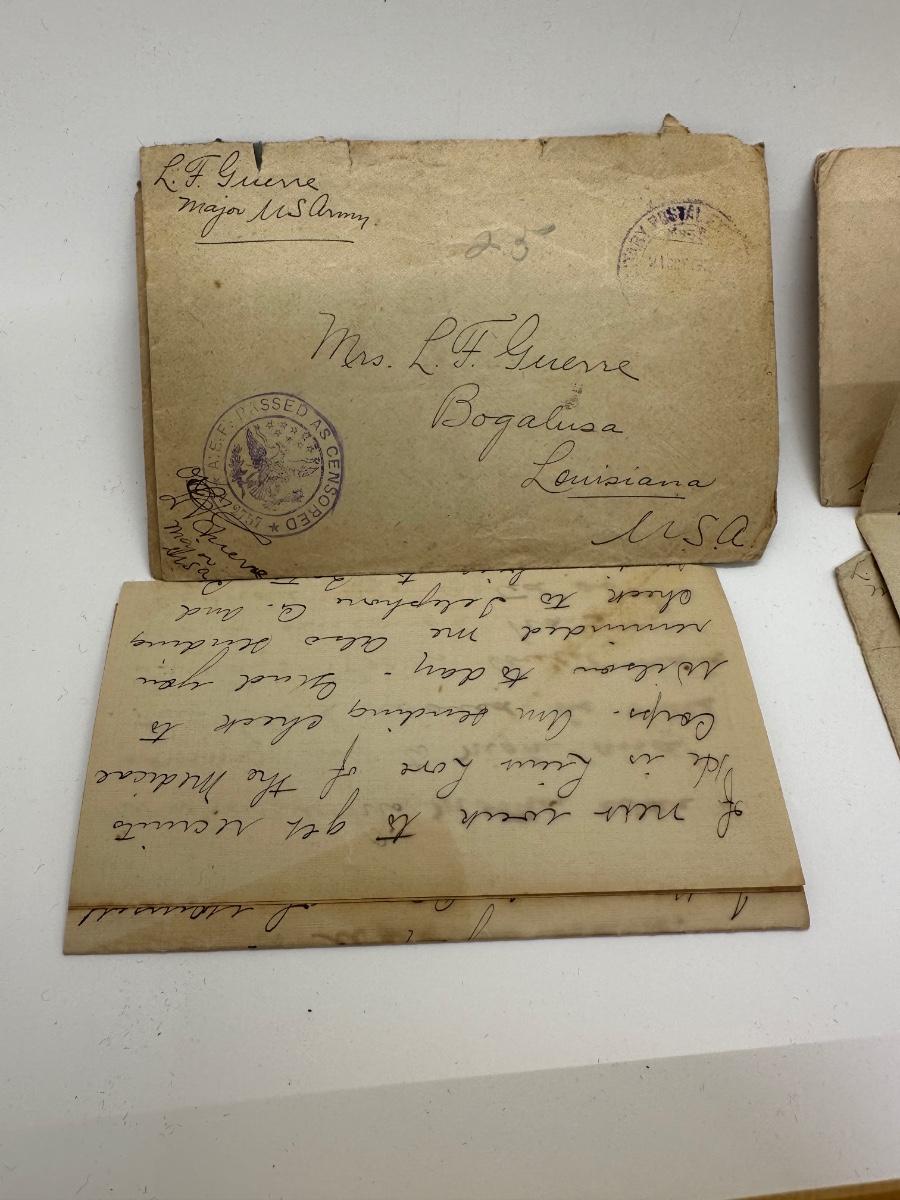 L. F. Guerre
Major US Army
25
MILITARY POSTAL
Mrs. L. F. Guerre
Bogalusa
Louisiana
U.S.A.
A.E.F. PASSED AS CENSORED
L F Guerre
Major
USA
of next week to get recruits
He is Lieut Love of the Medical
Corps. Am sending check to
Wilson today. Glad you
reminded me. Also sending
check to Telephone Co. and